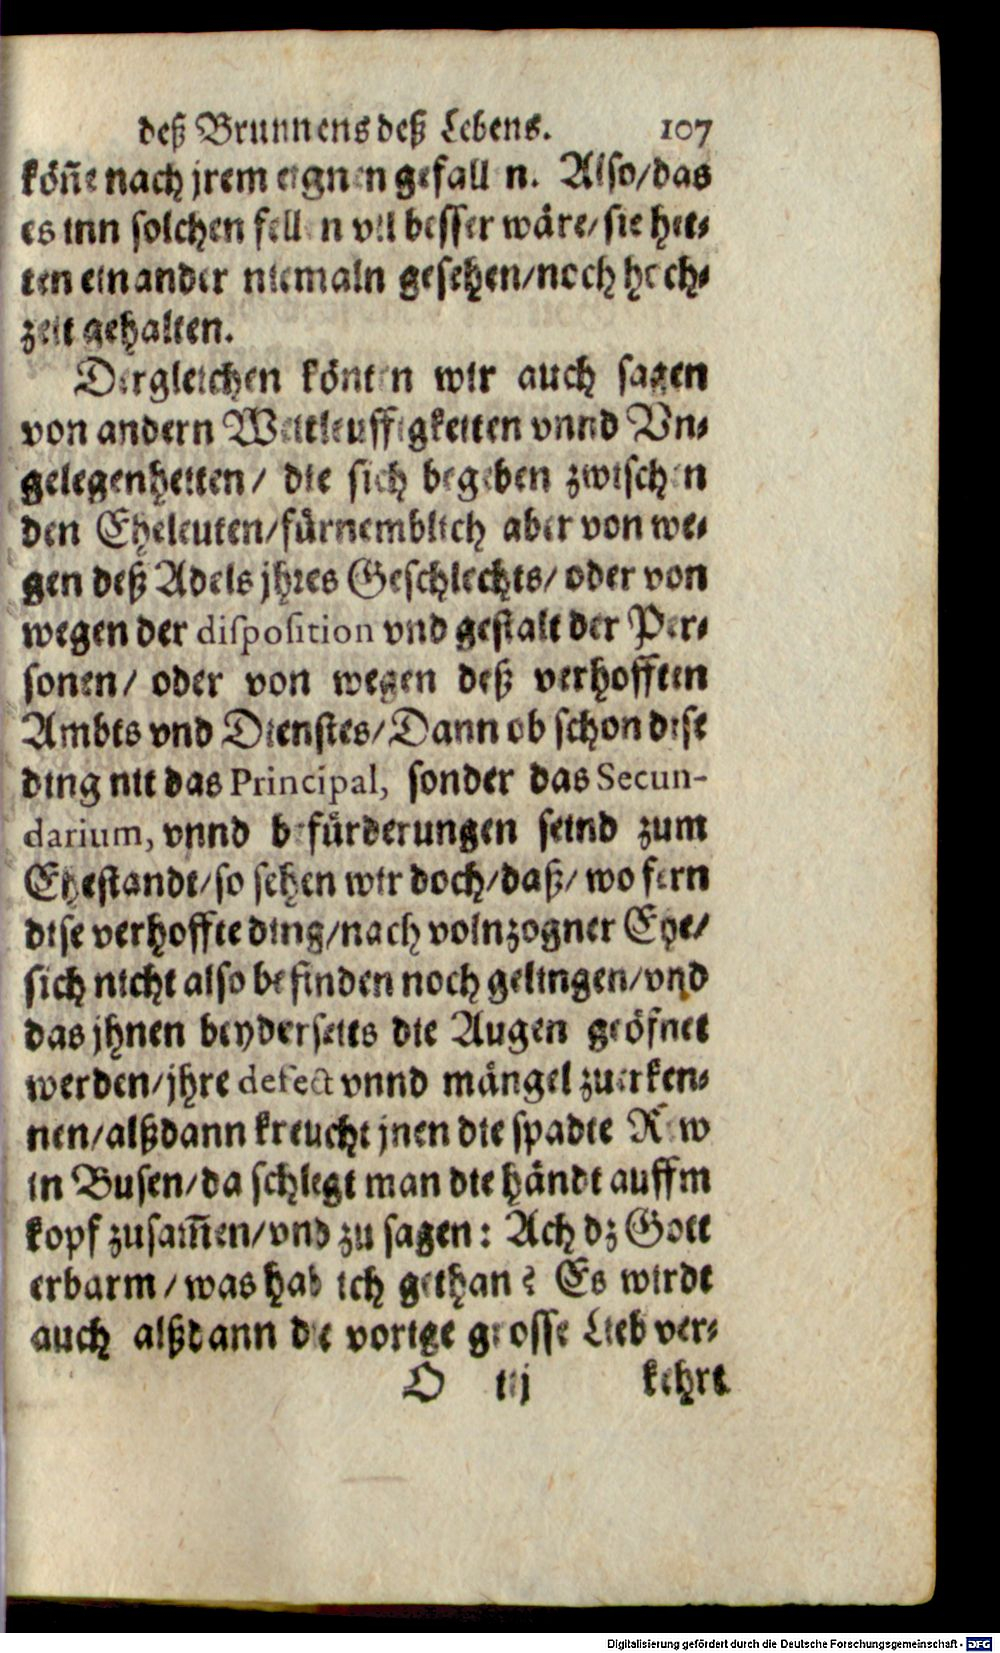 deß Brunnens deß Lebens. 107
köñe nach jrem eignen gefallen. Also/das
es inn solchen fellen vil besser wäre/sie het-
ten einander niemaln gesehen/noch hoch-
zeit gehalten.
Dergleichen könten wir auch sagen
von andern Weitleuffigkeiten vnnd Vn-
gelegenheiten/ die sich begeben zwischen
den Eheleuten/fürnemblich aber von we-
gen deß Adels jhres Geschlechts/ oder von
wegen der disposition vnd gestalt der Per-
sonen/ oder von wegen deß verhofften
Ambts vnd Dienstes/Dann ob schon dise
ding nit das Principal, sonder das Secun-
darium, vnnd befürderungen seind zum
Ehestandt/so sehen wir doch/daß/wo fern
dise verhoffte ding/nach volnzogner Ehe/
sich nicht also befinden noch gelingen/vnd
das jhnen beyderseits die Augen geöfnet
werden/jhre defect vnnd mängel zuerken-
nen/alßdann kreucht jnen die spadte Rew
in Busen/da schlegt man die händt auffm
kopf zusam̃en/vnd zu sagen: Ach dz Gott
erbarm/was hab ich gethan? Es wirdt
auch alßdann die vorige grosse Lieb ver-
O iij kehrt
Digitalisierung gefördert durch die Deutsche Forschungsgemeinschaft - DFG